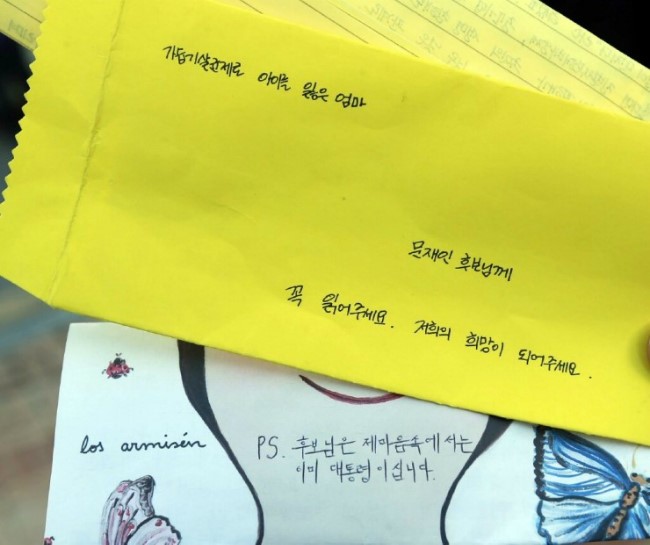 가습기살균제로 아이를 잃은 엄마
문재인 후보님께
꼭 읽어주세요. 저희의 희망이 되어주세요.
los armisén
PS. 후보님은 제마음속에서는
이미 대통령이십니다.